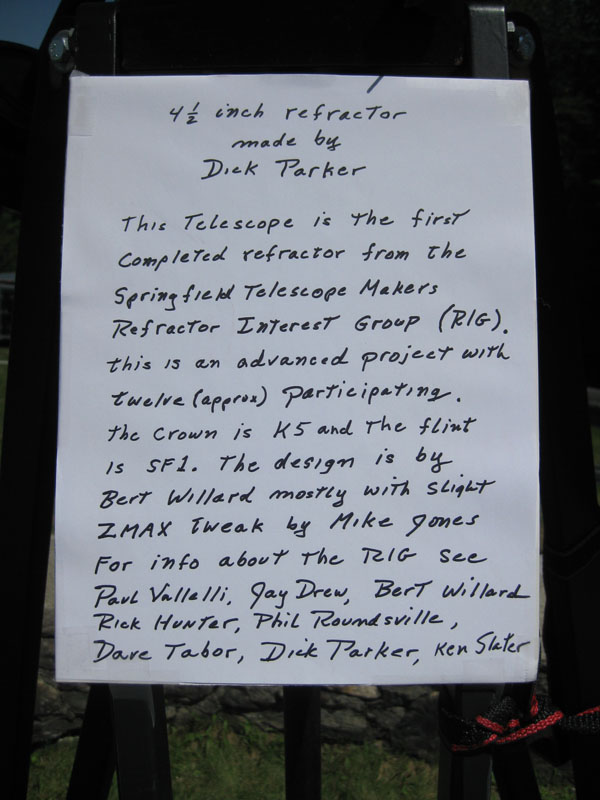 4 1/2 inch refractor
made by
Dick Parker
This Telescope is the first
Completed refractor from the
Springfield Telescope Makers
Refractor Interest Group (RIG).
this is an advanced project with
twelve (approx) participating.
the Crown is K5 and the flint
is SF1. The design is by
Bert Willard mostly with slight
ZMAX tweak by Mike Jones
For info about the RIG see
Paul Vallelli, Jay Drew, Bert Willard
Rick Hunter, Phil Roundsville,
Dave Tabor, Dick Parker, Ken Slater